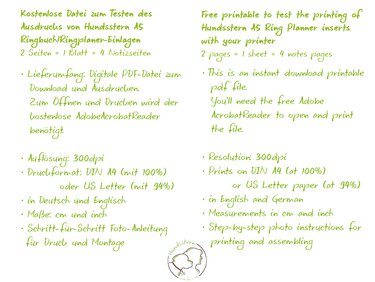 Kostenlose Datei zum Testen des
Ausdrucks von Hundsstern A5
Ringbuch/Ringplaner-Einlagen
2 Seiten = 1 Blatt = 4 Notizseiten
• Lieferumfang: Digitale PDF-Datei zum
Download und Ausdrucken.
Zum Öffnen und Drucken wird der
kostenlose AdobeAcrobatReader
benötigt.
• Auflösung: 300dpi
• Druckformat: DIN A4 (mit 100%)
oder US Letter (mit 94%)
• in Deutsch und Englisch
• Maße: cm und inch
• Schritt-für-Schritt Foto-Anleitung
für Druck und Montage
Free printable to test the printing of
Hundsstern A5 Ring Planner inserts
with your printer
2 pages = 1 sheet = 4 notes pages
• This is an instant download printable
pdf file.
You'll need the free Adobe
AcrobatReader to open and print
the file.
• Resolution: 300dpi
• Prints on DIN A4 (at 100%)
or US Letter paper (at 94%)
• in English and German
• Measurements in cm and inch
• Step-by-step photo instructions for
printing and assembling